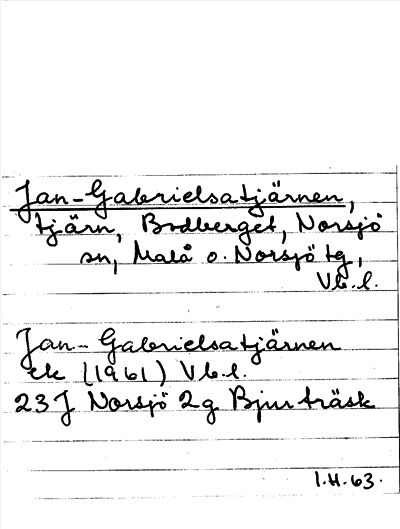 Jan-Gabrielsatjärnen,
tjärn, Bodberget, Norsjö
sn, Malå o. Norsjö tg,
Vb.l.
Jan-Gabrielsatjärnen
ek (1961) Vb.l.
23J Norsjö 2g Bjurträsk
I.H.63.